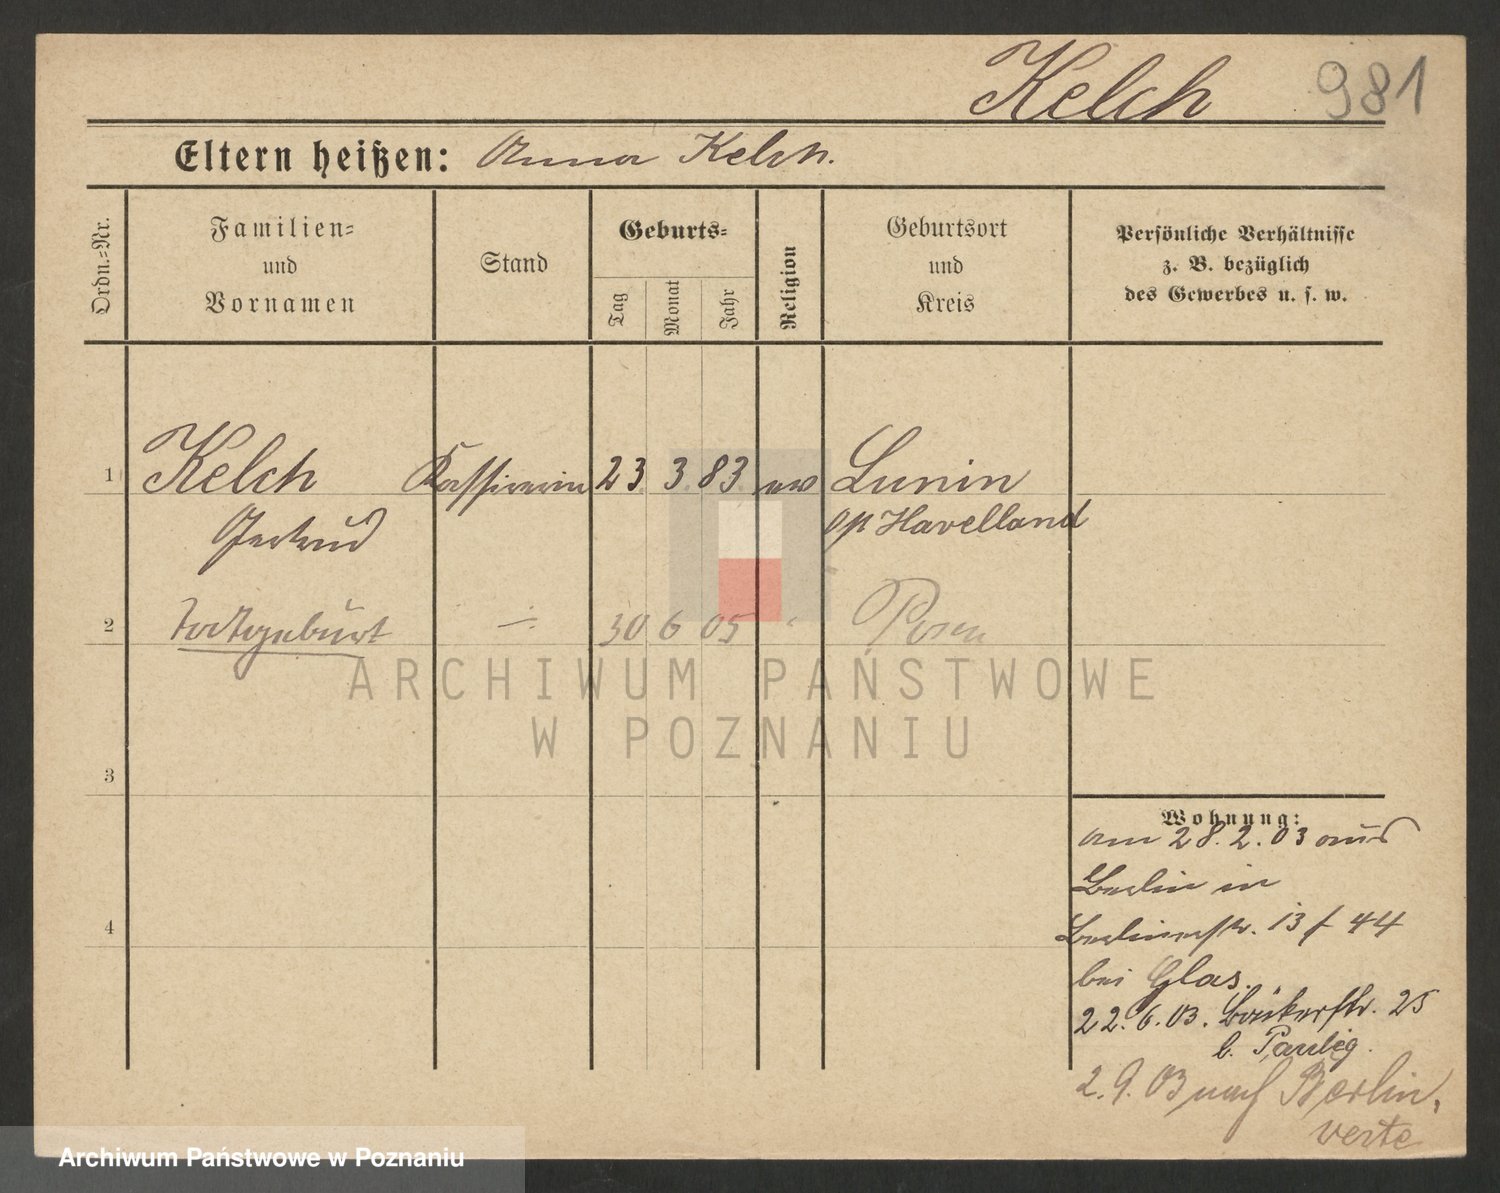 Kelch 981
Eltern heißen: Anna Kelch.
Ordn.-Nr.
Familien-
und
Vornamen
Stand
Geburts-
Tag
Monat
Jahr
Religion
Geburtsort
und
Kreis
Persönliche Verhältnisse
z. B. bezüglich
des Gewerbes u. s. w.
1 Kelch Kassirerin 23. 3. 83 ev Lunin
Gertrud Havelland
2 Todtgeburt 30 6 05 Posen
ARCHIWUM PAŃSTWOWE
W POZNANIU
3
Wohnung:
am 28.2.03 aus
Berlin in
4
Berlinerstr. 13 44
bei Glas.
22.6.03. Bäckerstr. 25
b. Paulig.
2.9.03 nach Berlin.
verte
Archiwum Państwowe w Poznaniu